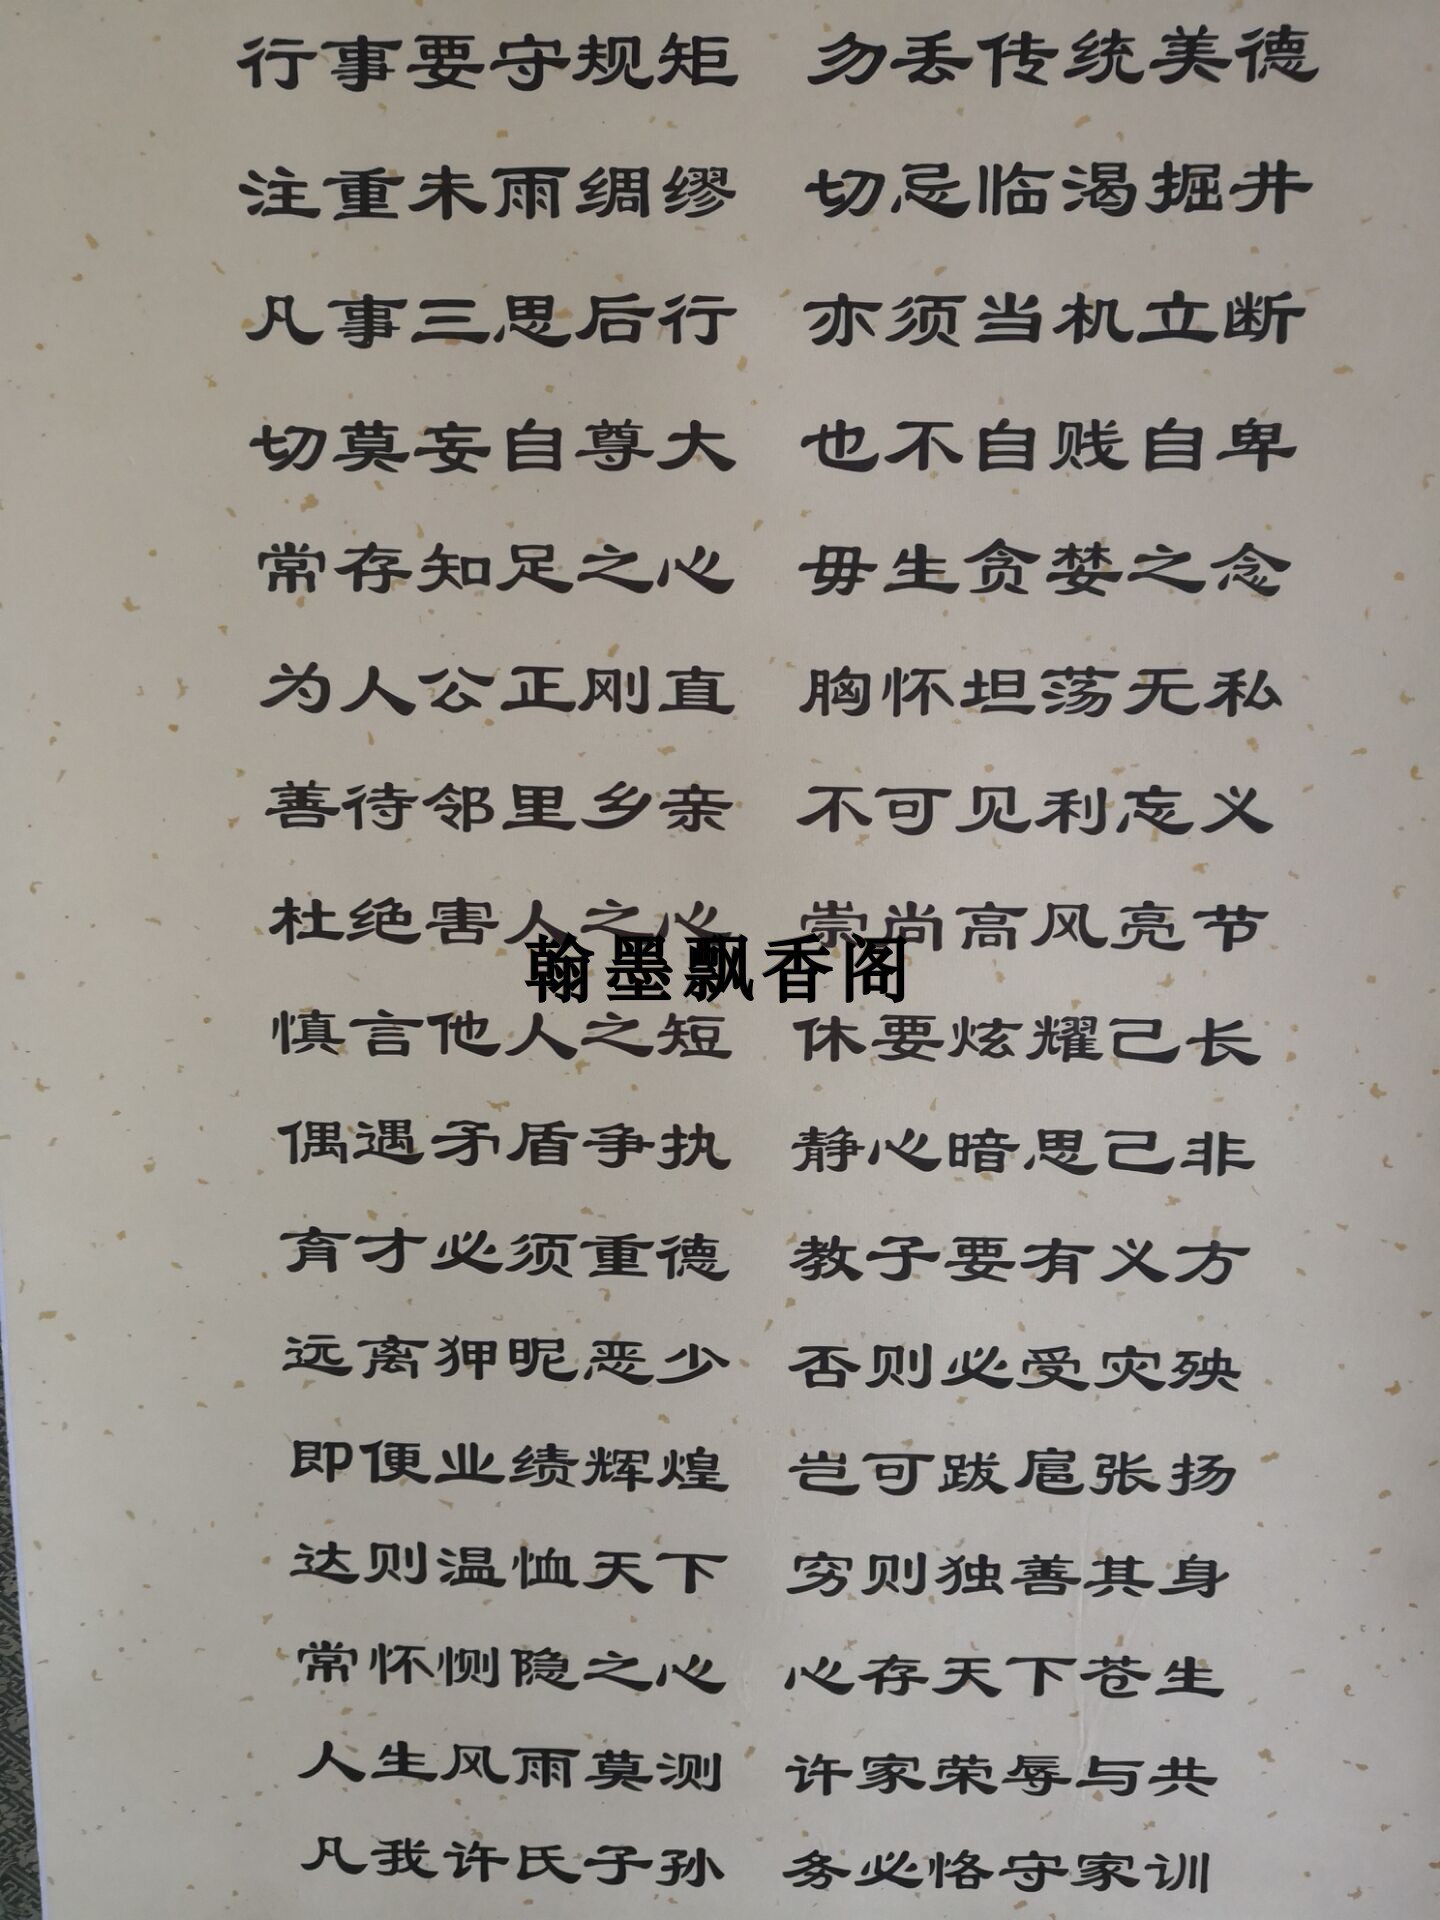 行事要守规矩 勿丢传统美德
注重未雨绸缪 切忌临渴掘井
凡事三思后行 亦须当机立断
切莫妄自尊大 也不自贱自卑
常存知足之心 毋生贪婪之念
为人公正刚直 胸怀坦荡无私
善待邻里乡亲 不可见利忘义
杜绝害人之心 崇尚高风亮节
翰墨飘香阁
慎言他人之短 休要炫耀己长
偶遇矛盾争执 静心暗思己非
育才必须重德 教子要有义方
远离狎昵恶少 否则必受灾殃
即便业绩辉煌 岂可跋扈张扬
达则温恤天下 穷则独善其身
常怀恻隐之心 心存天下苍生
人生风雨莫测 许家荣辱与共
凡我许氏子孙 务必恪守家训